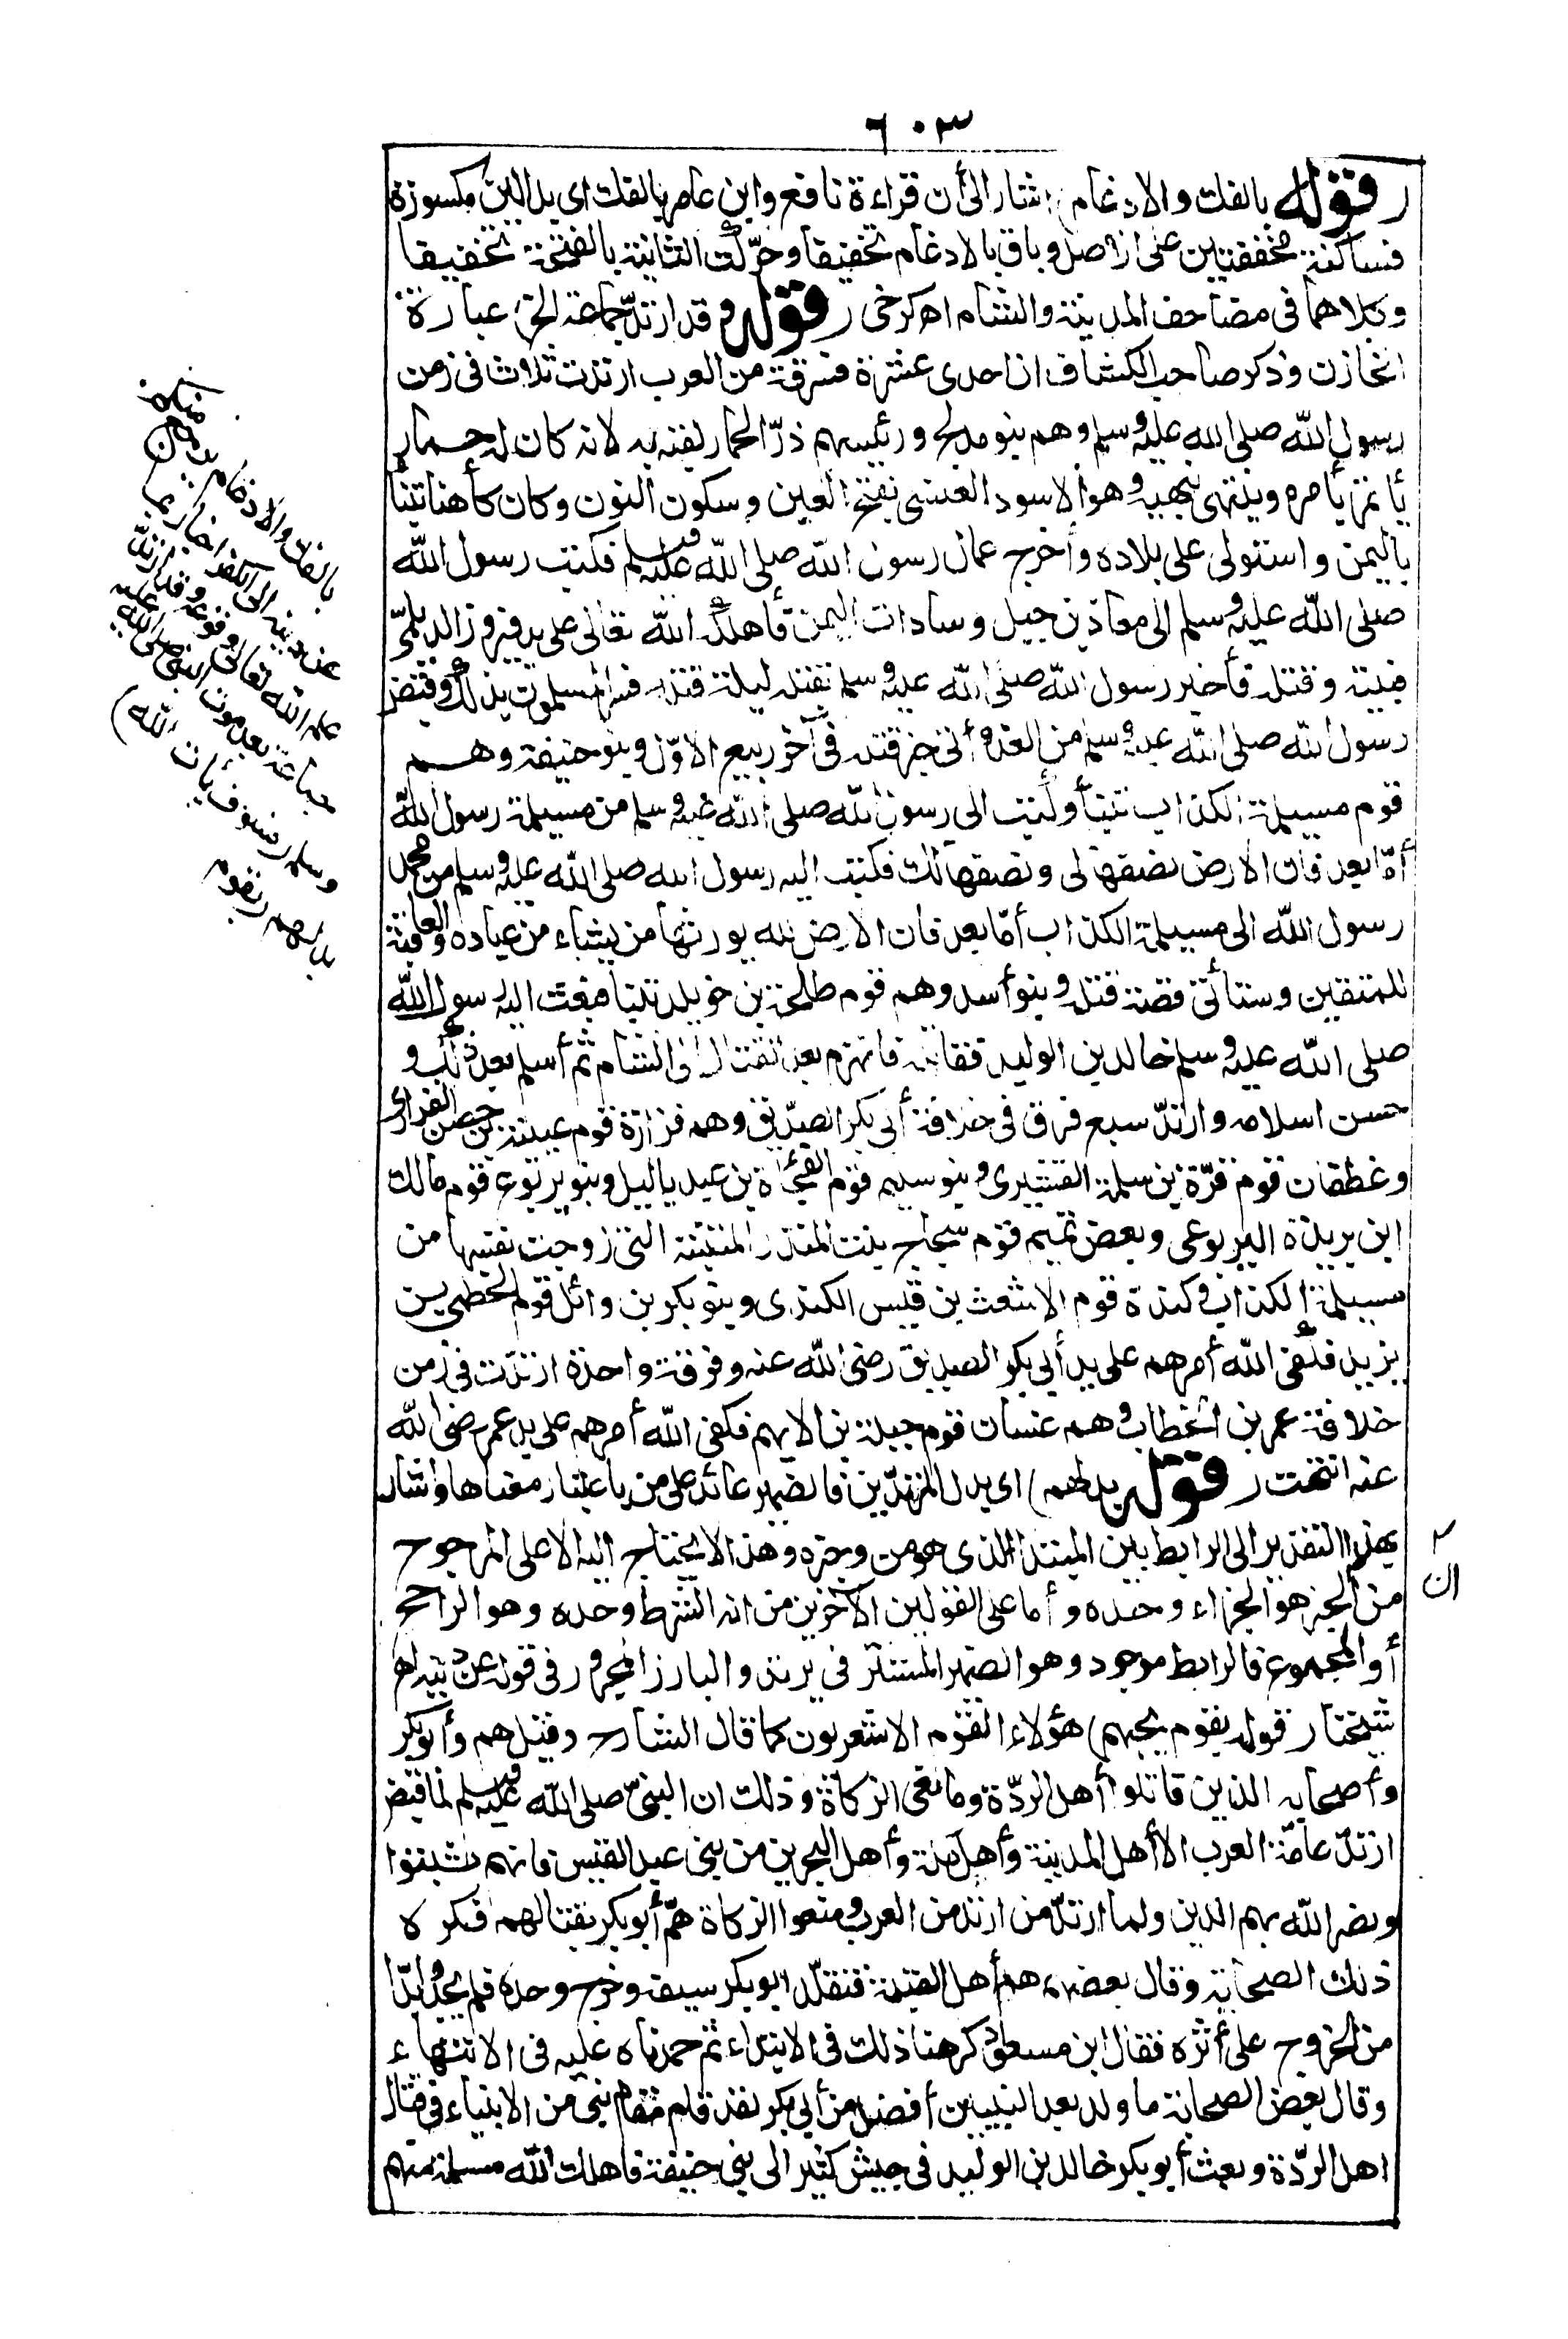 ٦٠٣
(قوله بالفك والادغام) اشار الى أن قراءة نافع وابن عامر بالفك اى بدالين مكسورة
فساكنة مخففتين على الاصل وباق بالادغام تخفيفا وحرّكت الثانية بالفتحة تخفيفا
وكلاهما فى مصاحف المدينة والشام اهـ كرخى (قوله وقد ارتدّ جماعة الخ) عبارة
الخازن وذكر صاحب الكشاف ان احدى عشرة فرقة من العرب ارتدت ثلاث فى زمن
رسول الله صلى الله عليه وسلم وهم بنو مدلج ورئيسهم ذو الحمار لقب به لانه كان له حمار
يأتمر بأمره وينتهى بنهيه وهو الاسود العنسى بفتح العين وسكون النون وكان كاهنا تنبأ
باليمن واستولى على بلاده وأخرج عمال رسول الله صلى الله عليه وسلم فكتب رسول الله
صلى الله عليه وسلم الى معاذ بن جبل وسادات اليمن فأهلكه الله تعالى على يد فيروز الديلمىّ
فبيته وقتله فأخبر رسول الله صلى الله عليه وسلم بقتله ليلة قتله فسر المسلمون بذلك وقبض
رسول الله صلى الله عليه وسلم من الغد وأتى خبر قتله فى آخر ربيع الاوّل وبنو حنيفة وهم
قوم مسيلمة الكذاب تنبأ وكتب الى رسول الله صلى الله عليه وسلم من مسيلمة رسول الله
أمّا بعد فان الارض نصفها لى ونصفها لك فكتب اليه رسول الله صلى الله عليه وسلم من محمد
رسول الله الى مسيلمة الكذاب أمّا بعد فان الارض لله يورثها من يشاء من عباده والعاقبة
للمتقين وستأتى قصة قتله وبنو أسد وهم قوم طلحة بن خويلد تنبأ فبعث اليه رسول الله
صلى الله عليه وسلم خالد بن الوليد فقاتله فانهزم بعد القتال الى الشام ثم أسلم بعد ذلك و
حسن اسلامه وارتدّ سبع فرق فى خلافة أبى بكر الصدّيق وهم فزارة قوم عيينة بن حصن الفزارى
وغطفان قوم قرّة بن سلمة القشيرى وبنو سليم قوم الفجاءة بن عبد ياليل وبنو يربوع قوم مالك
ابن بريدة اليربوعى وبعض تميم قوم سجاح بنت المنذر المتنبئة التى زوجت نفسها من
مسيلمة الكذاب وكندة قوم الاشعث بن قيس الكندى وبنو بكر بن وائل قوم الحطمى بن
يزيد فكفى الله أمرهم على يد أبى بكر الصديق رضى الله عنه وفرقة واحدة ارتدّت فى زمن
خلافة عمر بن الخطاب وهم غسان قوم جبلة بن الايهم فكفى الله أمرهم على يد عمر رضى الله
عنه انتهت (قوله بدلهم) اى بدل المرتدّين فالضمير عائد على من باعتبار معناها واشار
بهذا التقدير الى الرابط بين المبتدا الذى هو من وخبره وهذا لا يحتاج اليه الا على المرجوح
من ان الخبر هو الجزاء وحده وأما على القولين الآخرين من انه الشرط وحده وهو الراجح
أو المجموع فالرابط موجود وهو الضمير المستتر فى يرتد والبارز المجرور فى قوله عن دينه اهـ
شيخنا (قوله بقوم يحبهم) هؤلاء القوم الاشعريون كما قال الشارح وقيل هم وأبو بكر
وأصحابه الذين قاتلوا أهل الردّة ومانعى الزكاة وذلك ان النبىّ صلى الله عليه وسلم لما قبض
ارتدّ عامّة العرب الا أهل المدينة وأهل مكة وأهل البحرين من بنى عبد القيس فانهم ثبتوا
ونصر الله بهم الدين ولما ارتدّ من ارتد من العرب ومنعوا الزكاة همّ أبو بكر بقتالهم فكره
ذلك الصحابة وقال بعضهم هم أهل القبلة فتقلّد ابو بكر سيفه وخرج وحده فلم يجدوا بدّا
من الخروج على أثره فقال ابن مسعود كرهنا ذلك فى الابتداء ثم حمدناه عليه فى الانتهاء
وقال بعض الصحابة ما ولد بعد النبيين أفضل من أبى بكر لقد قام مقام نبى من الانبياء فى قتال
اهل الردّة وبعث أبو بكر خالد بن الوليد فى جيش كثير الى بنى حنيفة فأهلك الله مسيلمة منهم
بالفك والادغام يرجع (منكم
عن دينه) الى الكفر اخبار بما
علم الله تعالى وقوعه وقد ارتدّ
جماعة بعد موت النبى صلى الله عليه
وسلم (فسوف يأتى الله)
بدلهم (بقوم
ان